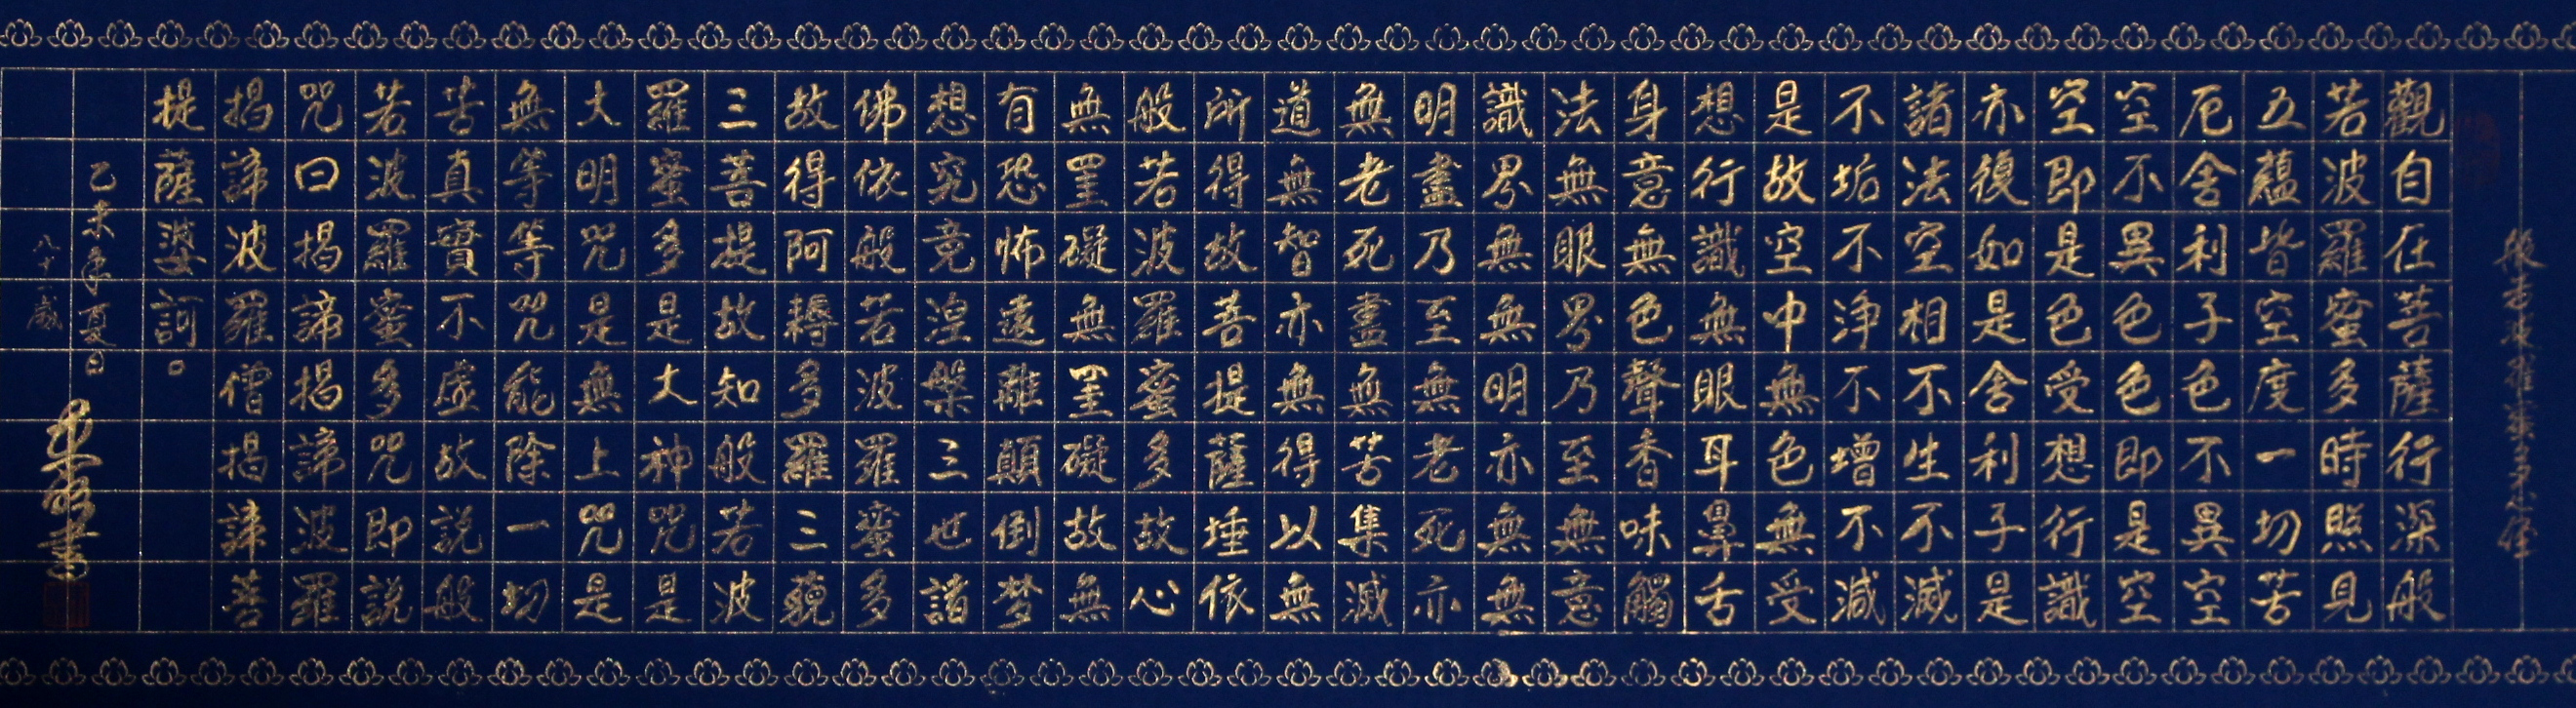 般若波羅蜜多心經
觀自在菩薩行深般
若波羅蜜多時照見
五蘊皆空度一切苦
厄舍利子色不異空
空不異色色即是空
空即是色受想行識
亦復如是舍利子是
諸法空相不生不滅
不垢不淨不增不減
是故空中無色無受
想行識無眼耳鼻舌
身意無色聲香味觸
法無眼界乃至無意
識界無無明亦無無
明盡乃至無老死亦
無老死盡無苦集滅
道無智亦無得以無
所得故菩提薩埵依
般若波羅蜜多故心
無罣礙無罣礙故無
有恐怖遠離顛倒梦
想究竟涅槃三世諸
佛依般若波羅蜜多
故得阿耨多羅三藐
三菩提故知般若波
羅蜜多是大神咒是
大明咒是無上咒是
無等等咒能除一切
苦真實不虛故說般
若波羅蜜多咒即說
咒曰揭諦揭諦波羅
揭諦波羅僧揭諦菩
提薩婆訶。
乙未年夏日
八十一歲
書